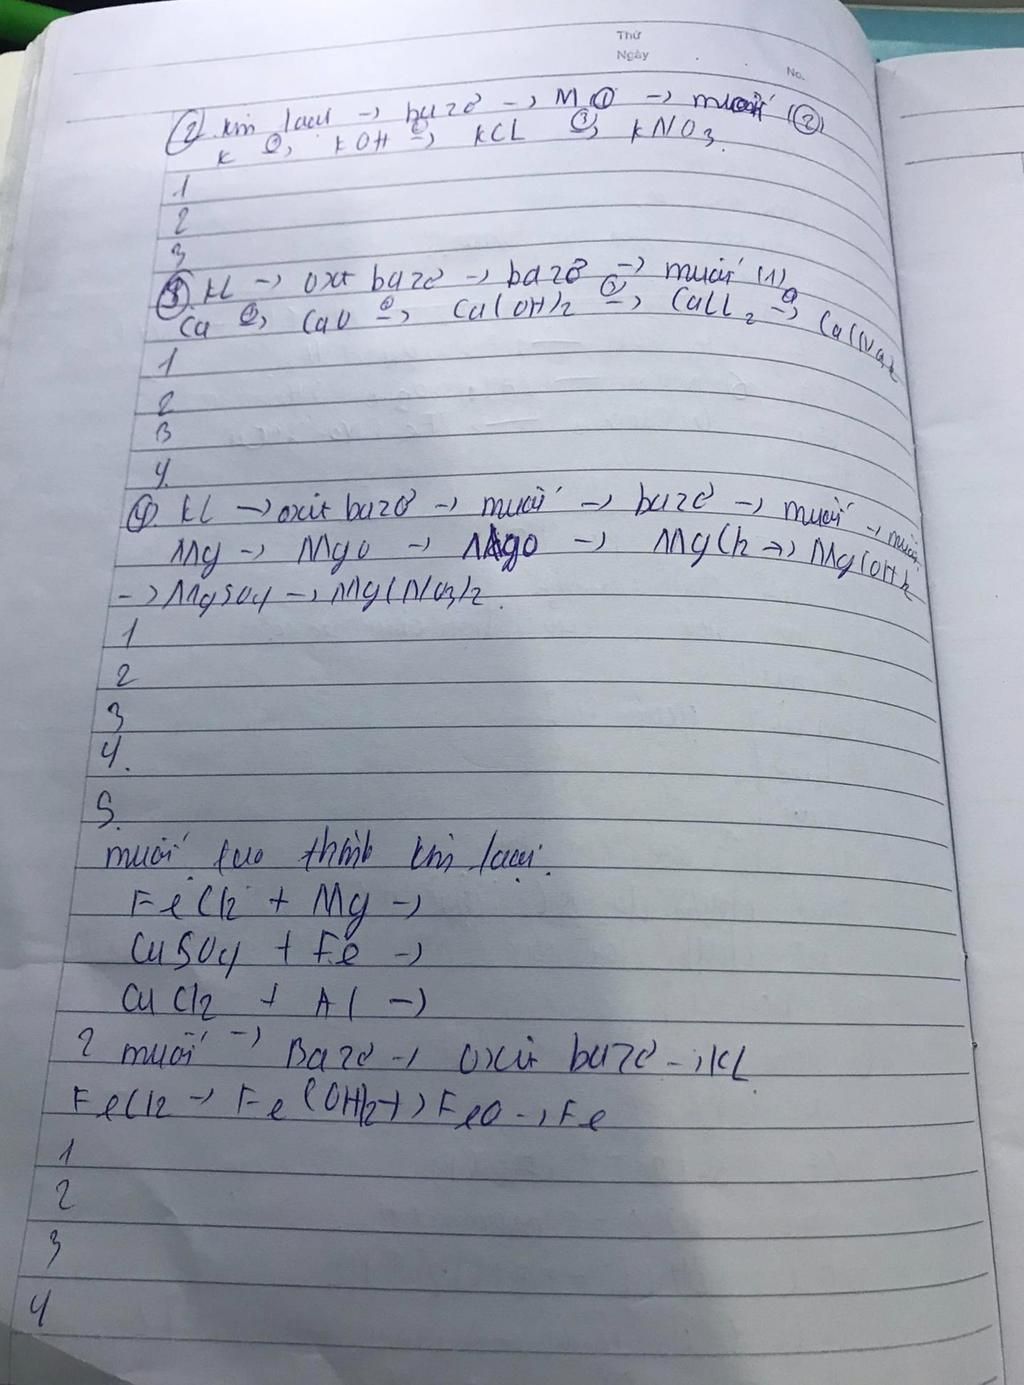 Thứ
Ngày
No.
② kim loại → bazơ → M① → muối (②)
K ①→ KOH ②→ KCL ③→ KNO3.
1
2
3
③ KL → oxit bazơ → bazơ → muối (1)
Ca ①→ CaO ②→ Ca(OH)2 ③→ CaCl2 ④→ Ca(NO3)2
1
2
3
4.
④. KL → oxit bazơ → muối → bazơ → muối → muối
Mg → MgO → MgO → MgCl2 → Mg(OH)2
→ MgSO4 → Mg(NO3)2.
1
2
3
4.
5.
muối tạo thành kim loại.
FeCl2 + Mg →
CuSO4 + Fe →
CuCl2 + Al →
2 muối → Bazơ → oxit bazơ → KL
FeCl2 → Fe(OH)2 → FeO → Fe
1
2
3
4